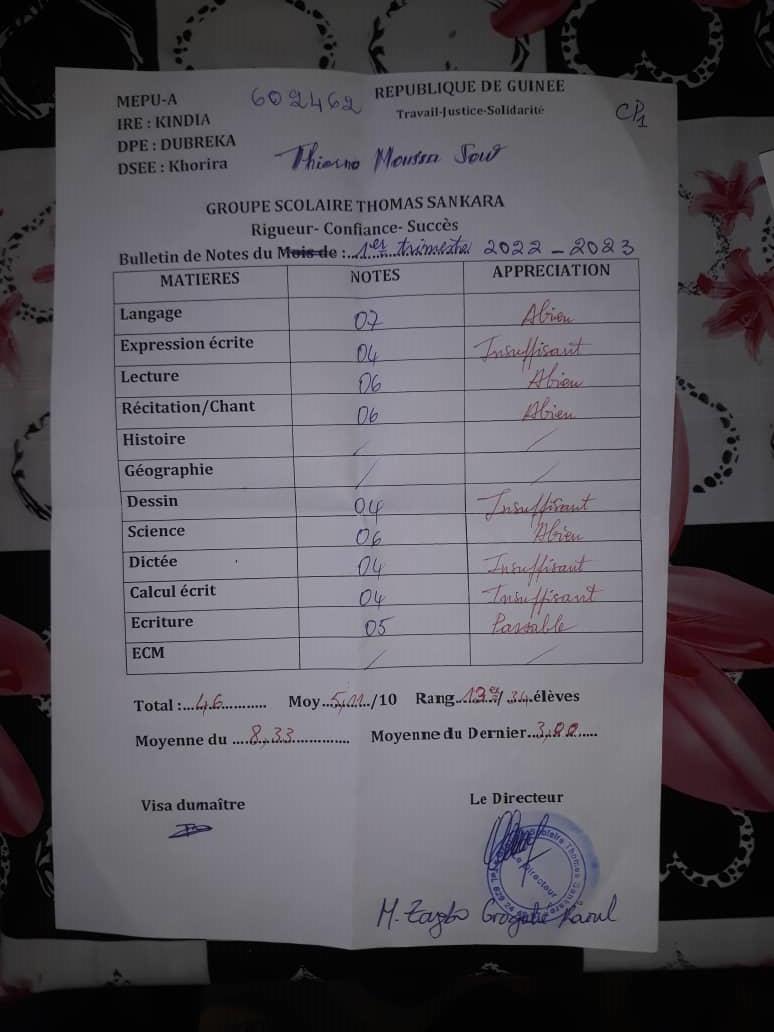 MEPU-A 602462 REPUBLIQUE DE GUINEE
IRE : KINDIA Travail-Justice-Solidarité CP1
DPE : DUBREKA
DSEE : Khorira Thierno Moussa Sow
GROUPE SCOLAIRE THOMAS SANKARA
Rigueur- Confiance- Succès
Bulletin de Notes du Mois de :....1er trimestre 2022 - 2023
MATIERES NOTES APPRECIATION
Langage 07 Abien
Expression écrite 04 Insuffisant
Lecture 06 Abien
Récitation/Chant 06 Abien
Histoire / /
Géographie / /
Dessin 04 Insuffisant
Science 06 Abien
Dictée 04 Insuffisant
Calcul écrit 04 Insuffisant
Ecriture 05 Passable
ECM / /
Total :...46............. Moy...5,11...../10 Rang...19e/ 34 élèves
Moyenne du .....8,33................. Moyenne du Dernier...3,00......
Visa dumaître Le Directeur
Le Directeur
M.